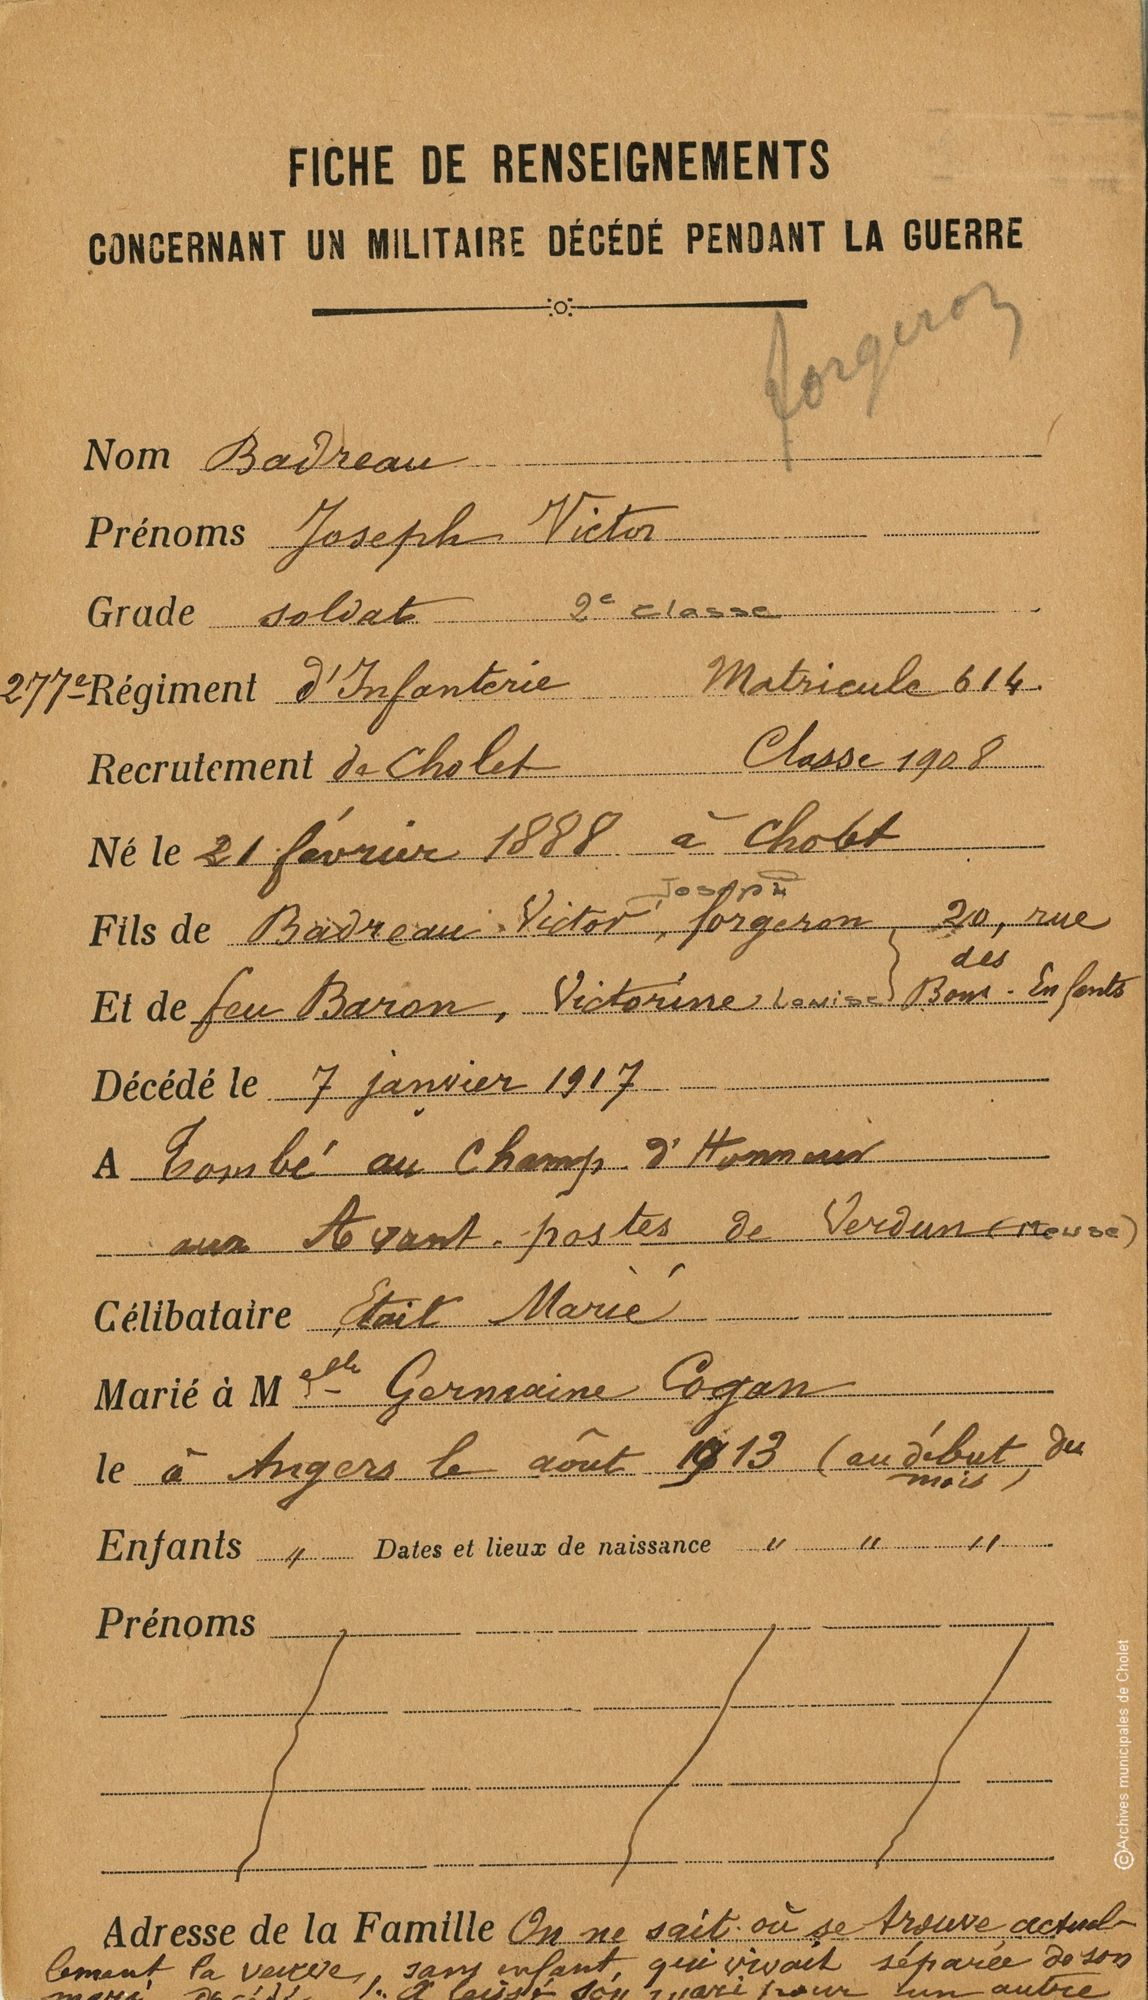 FICHE DE RENSEIGNEMENTS
CONCERNANT UN MILITAIRE DÉCÉDÉ PENDANT LA GUERRE
forgeron
Nom Badreau
Prénoms Joseph Victor
Grade soldat 2e classe
277e Régiment d'Infanterie Matricule 614.
Recrutement de Cholet Classe 1908
Né le 21 février 1888 à Cholet
Joseph
Fils de Badreau Victor, forgeron 20, rue
des
Et de feu Baron, Victorine Louise Bons-Enfants
Décédé le 7 janvier 1917
A Tombé au Champ d'Honneur
aux Avant-postes de Verdun (Meuse)
Célibataire Etait Marié
Marié à M elle Germaine Cogan
le à Angers le août 1913 (au début du
mois)
Enfants " Dates et lieux de naissance " " "
Prénoms
Adresse de la Famille On ne sait où se trouve actuel-
lement la veuve, sans enfant, qui vivait séparée de son
mari décédé. A laissé son mari pour un autre
©Archives municipales de Cholet